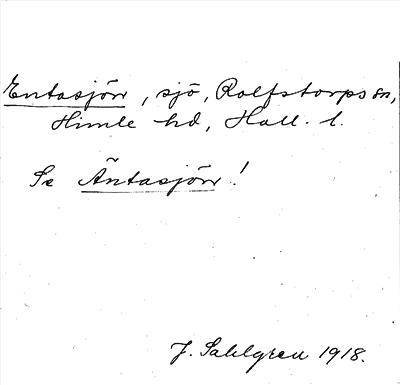 Entasjön, sjö, Rolfstorps sn,
Himle hd, Hall. l.
Se Äntasjön!
J. Sahlgren 1918.